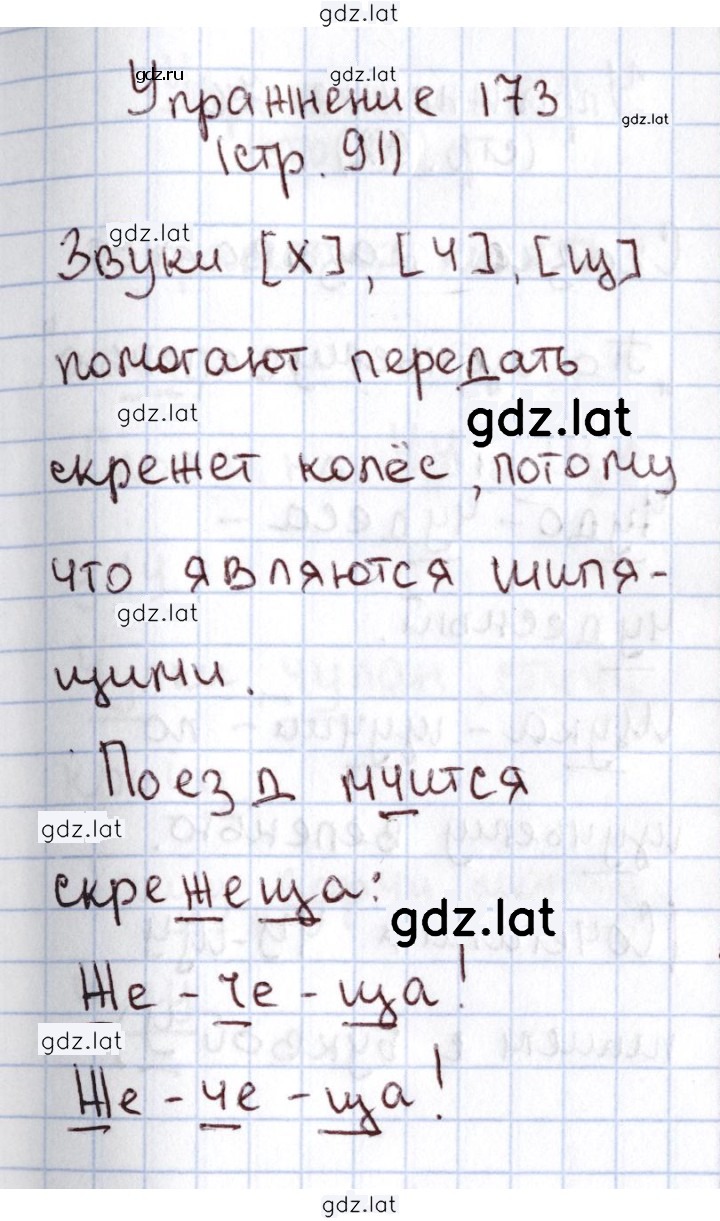 gdz.lat
gdz.ru
gdz.lat
Упражнение 173
gdz.lat
(стр. 91)
gdz.lat
Звуки [х], [ч], [щ]
помогают передать
gdz.lat
gdz.lat
скрежет колёс, потому
что являются шипя-
gdz.lat
щими.
Поезд мчится
gdz.lat
скрежеща:
gdz.lat
Же - че - ща!
gdz.lat
Же - че - ща!
gdz.lat